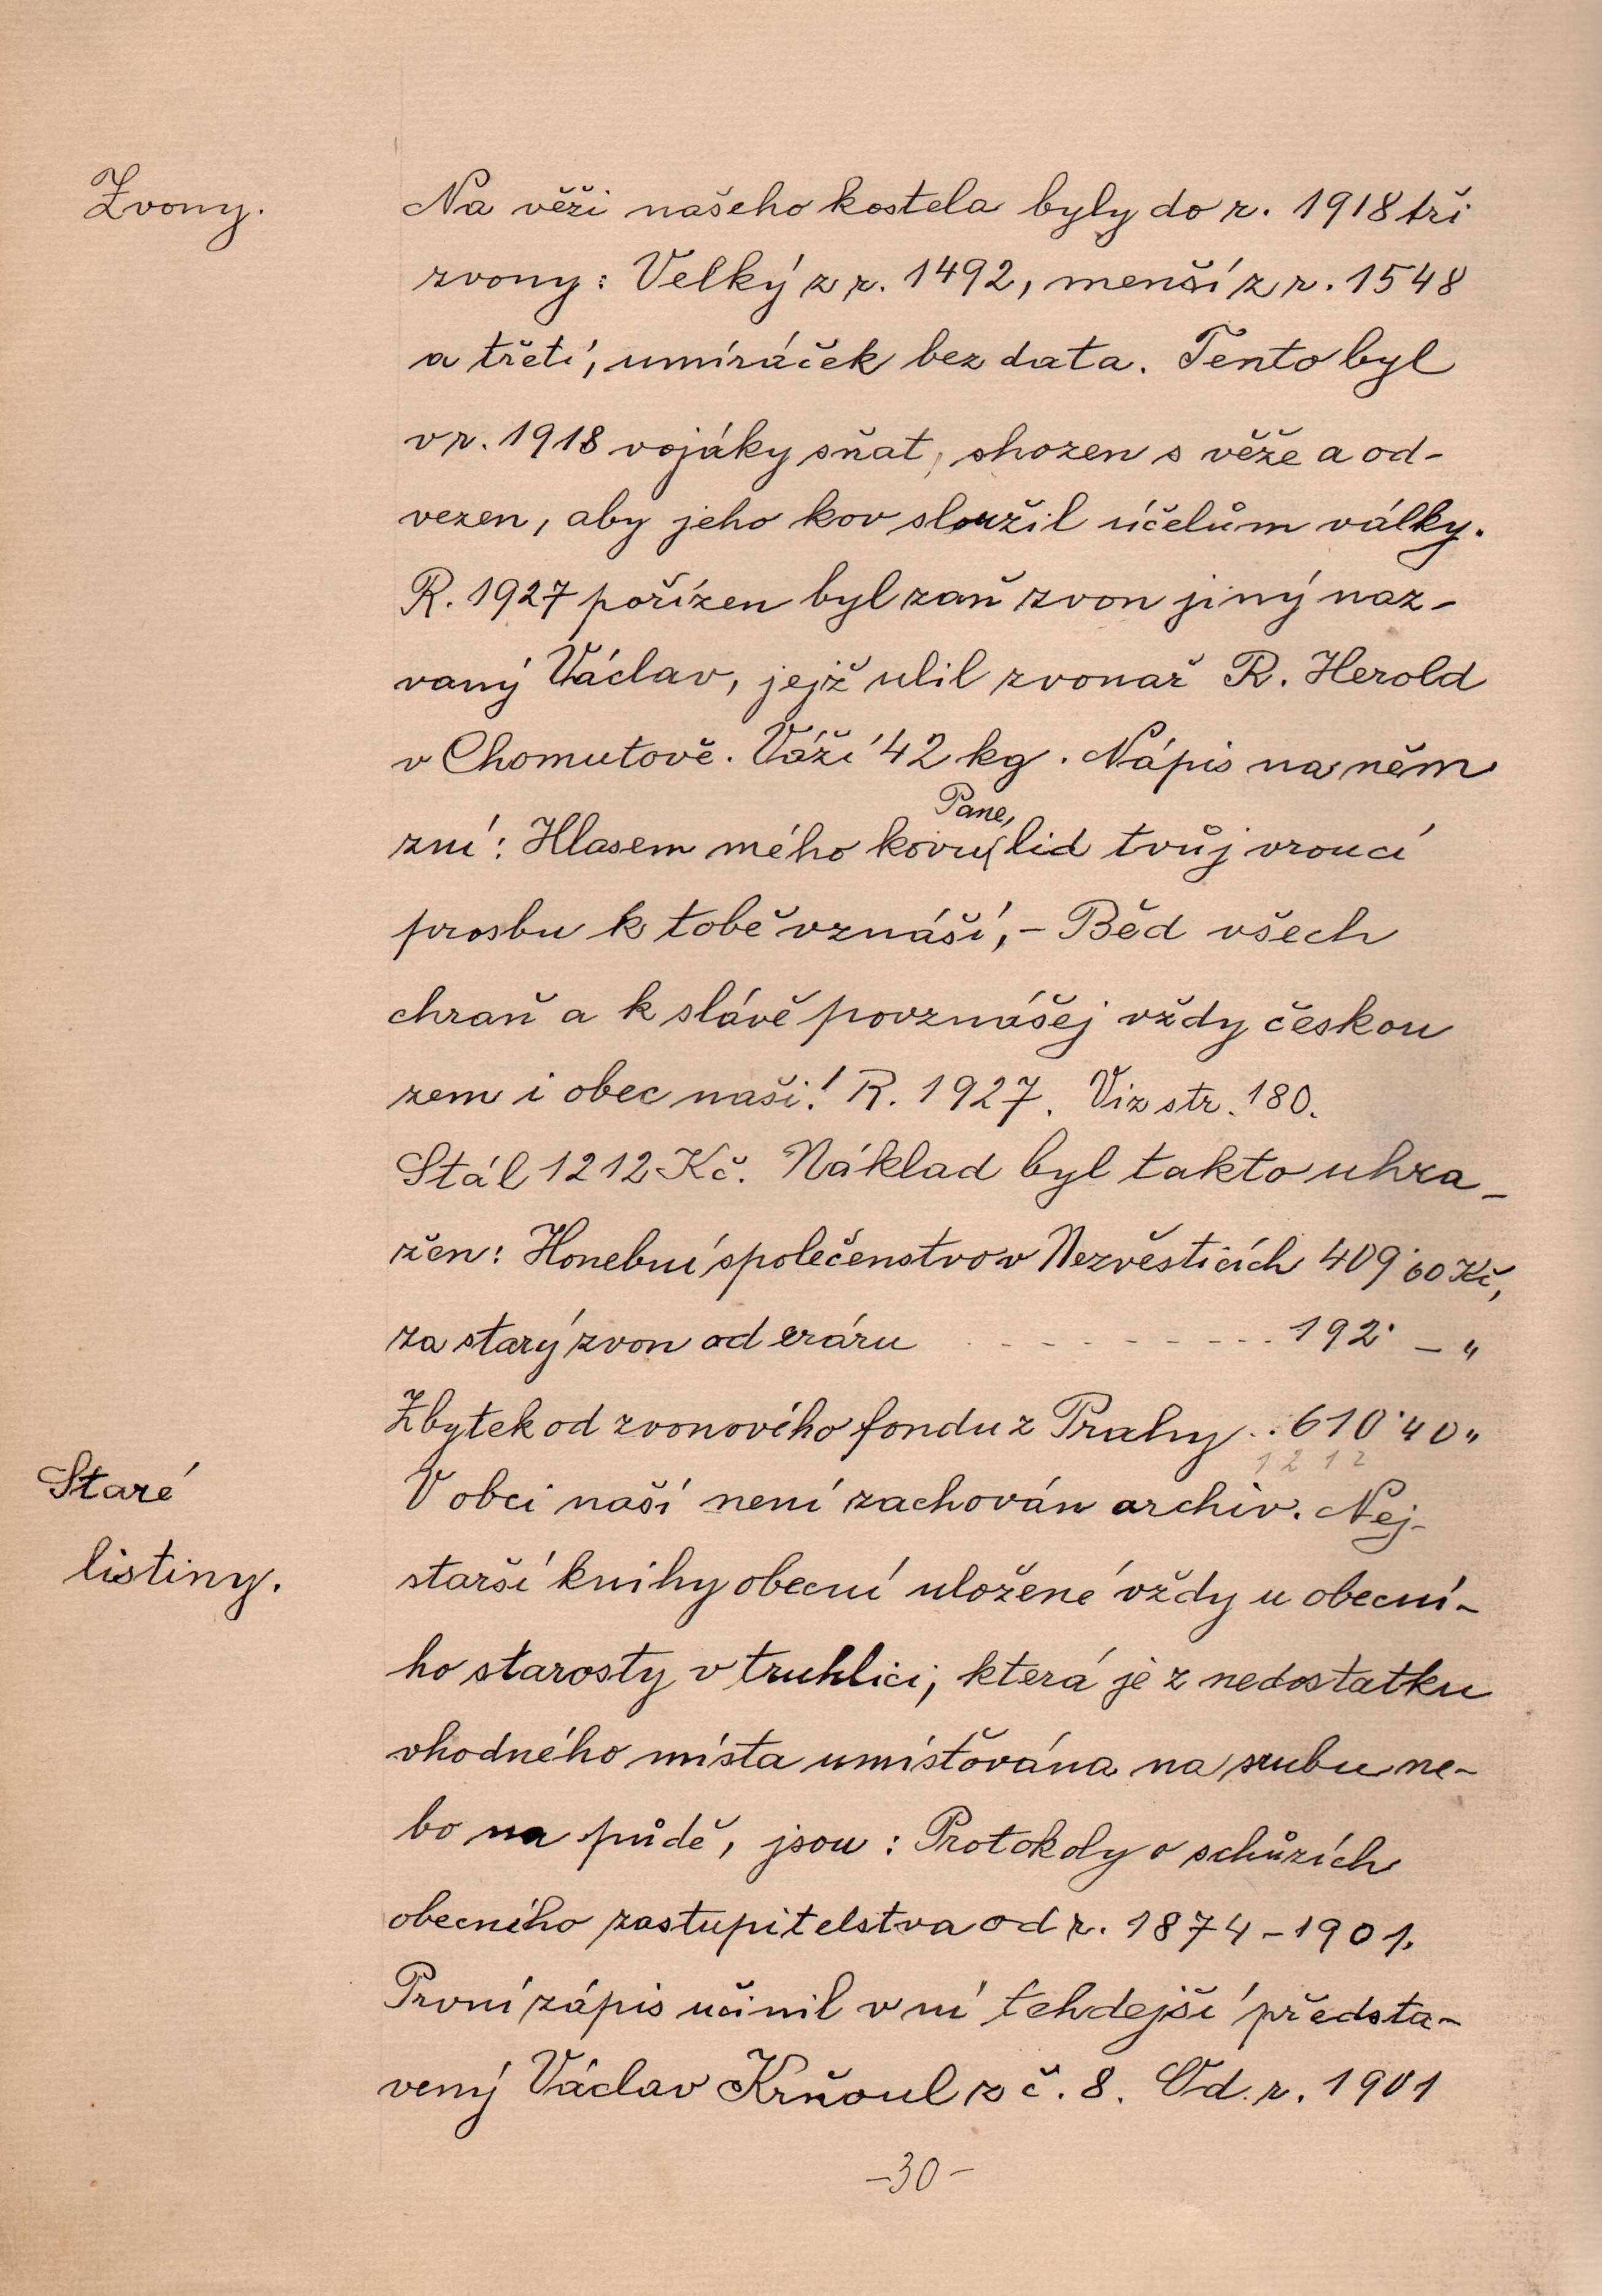 Zvony.
Na věži našeho kostela byly do r. 1918 tři
zvony: Velký z r. 1492, menší z r. 1548
a třetí, umíráček bez data. Tento byl
v r. 1918 vojáky sňat, shozen s věže a od-
vezen, aby jeho kov sloužil účelům války.
R. 1927 pořízen byl zaň zvon jiný naz-
vaný Václav, jejž ulil zvonař R. Herold
v Chomutově. Váží 42 kg. Nápis na něm
Pane,
zní: Hlasem mého kovu lid tvůj vroucí
prosbu k tobě vznáší, - Běd všech
chraň a k slávě povznášej vždy českou
zem i obec naši! R. 1927. Viz str. 180.
Stál 1212 Kč. Náklad byl takto uhra-
žen: Honební společenstvo v Nezvěsticích 409·60 Kč,
za starý zvon od eráru - - - - - - - - 192·— "
Zbytek od zvonového fondu z Prahy . . 610·40 "
1212
Staré
listiny.
V obci naší není zachován archiv. Nej-
starší knihy obecní uložené vždy u obecní-
ho starosty v truhlici, která je z nedostatku
vhodného místa umisťována na srubu ne-
bo na půdě, jsou: Protokoly o schůzích
obecního zastupitelstva od r. 1874-1901.
První zápis učinil v ní tehdejší předsta-
vený Václav Krňoul z č. 8. Od. r. 1901
-30-